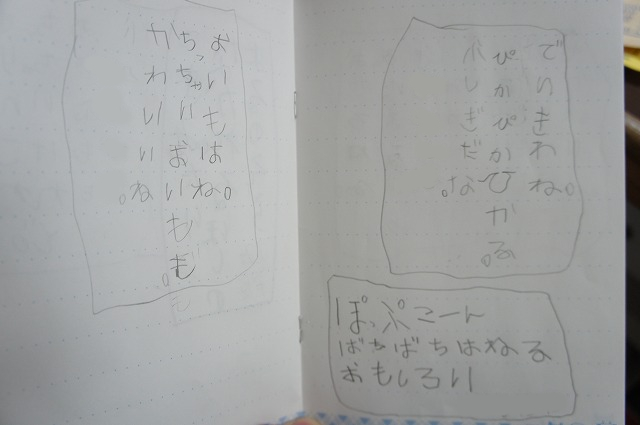 でいきわね。
ぴかぴかひかる。
ふしぎだな。
ぽっぷこーん
ばちばちはねる
おもしろい
おいもはね。
ちっちゃいおいもも。
かわいいね。